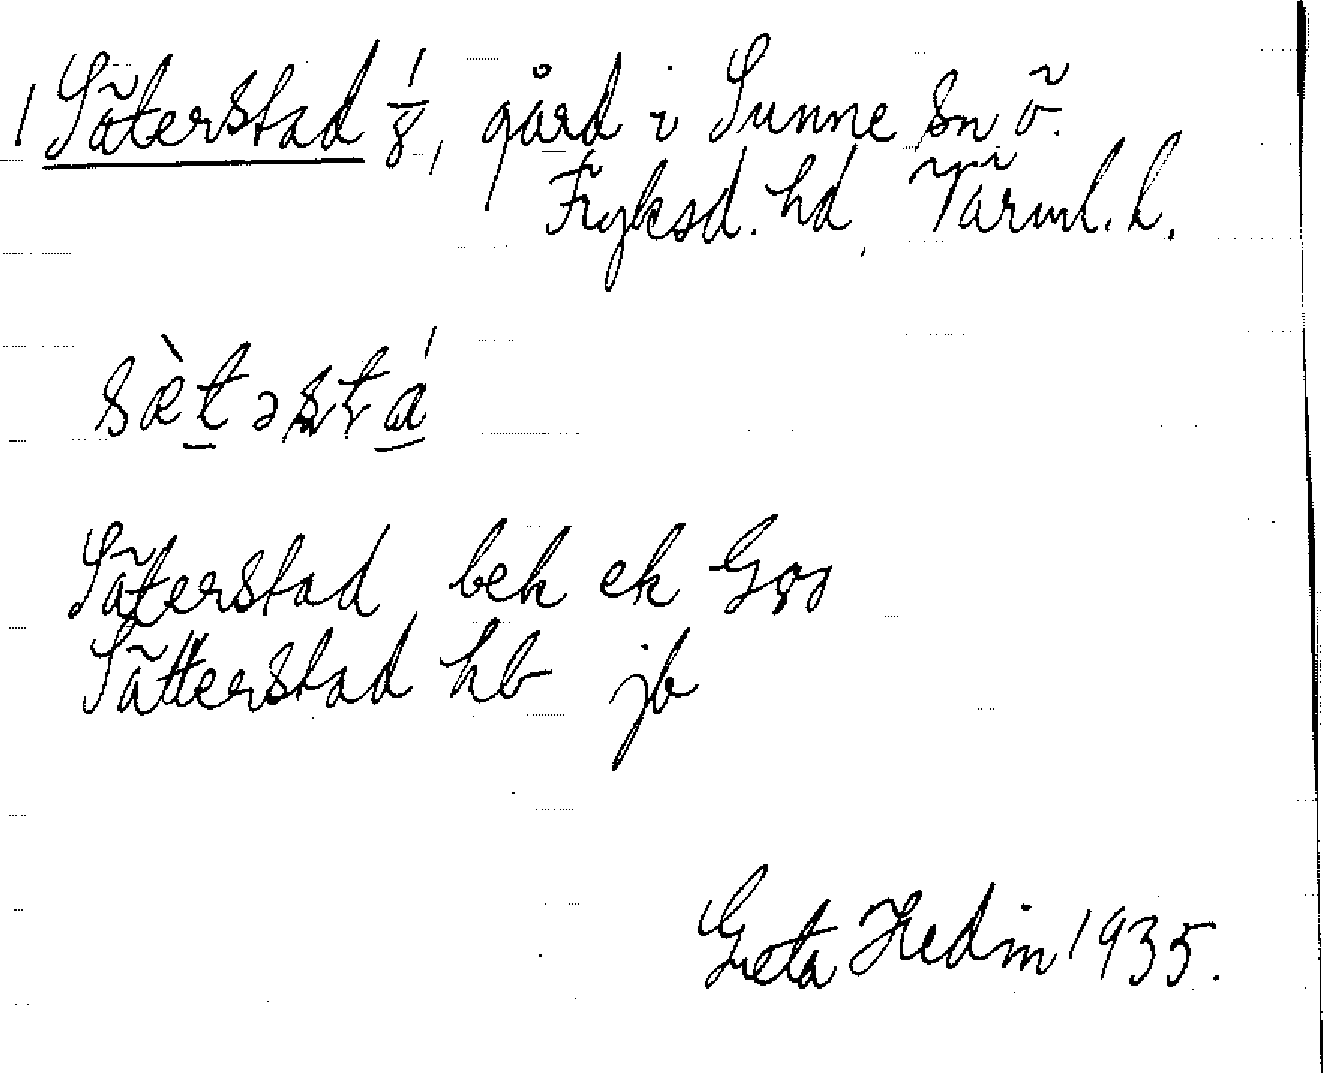 1 Säterstad 1/8, gård i Sunne sn ö.
Fryksd. hd, Värml. l.
sæ̀tәstá
Säterstad bek ek Gso
Sätterstad hb jb
Greta Hedin 1935.